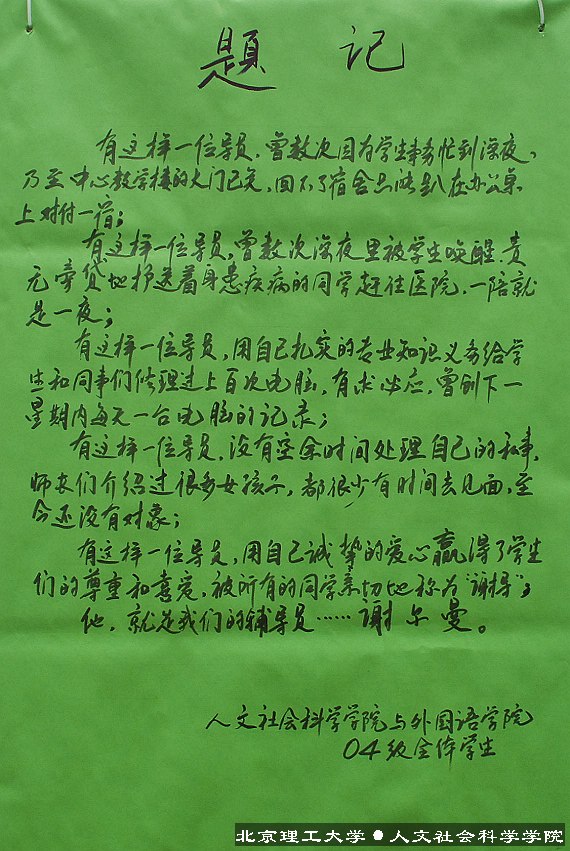 题 记
有这样一位导员，曾数次因为学生事务忙到深夜，
乃至中心教学楼的大门已关，回不了宿舍只能趴在办公桌
上对付一宿；
有这样一位导员，曾数次深夜里被学生唤醒，责
无旁贷地护送着身患疾病的同学赶往医院，一陪就
是一夜；
有这样一位导员，用自己扎实的专业知识义务给学
生和同事们修理过上百次电脑，有求必应，曾创下一
星期内每天一台电脑的记录；
有这样一位导员，没有空余时间处理自己的私事，
师长们介绍过很多女孩子，都很少有时间去见面，至
今还没有对象；
有这样一位导员，用自己诚挚的爱心赢得了学生
们的尊重和喜爱，被所有的同学亲切地称为“谢导”；
他，就是我们的辅导员……谢尔曼。
人文社会科学学院与外国语学院
04级全体学生
北京理工大学●人文社会科学学院